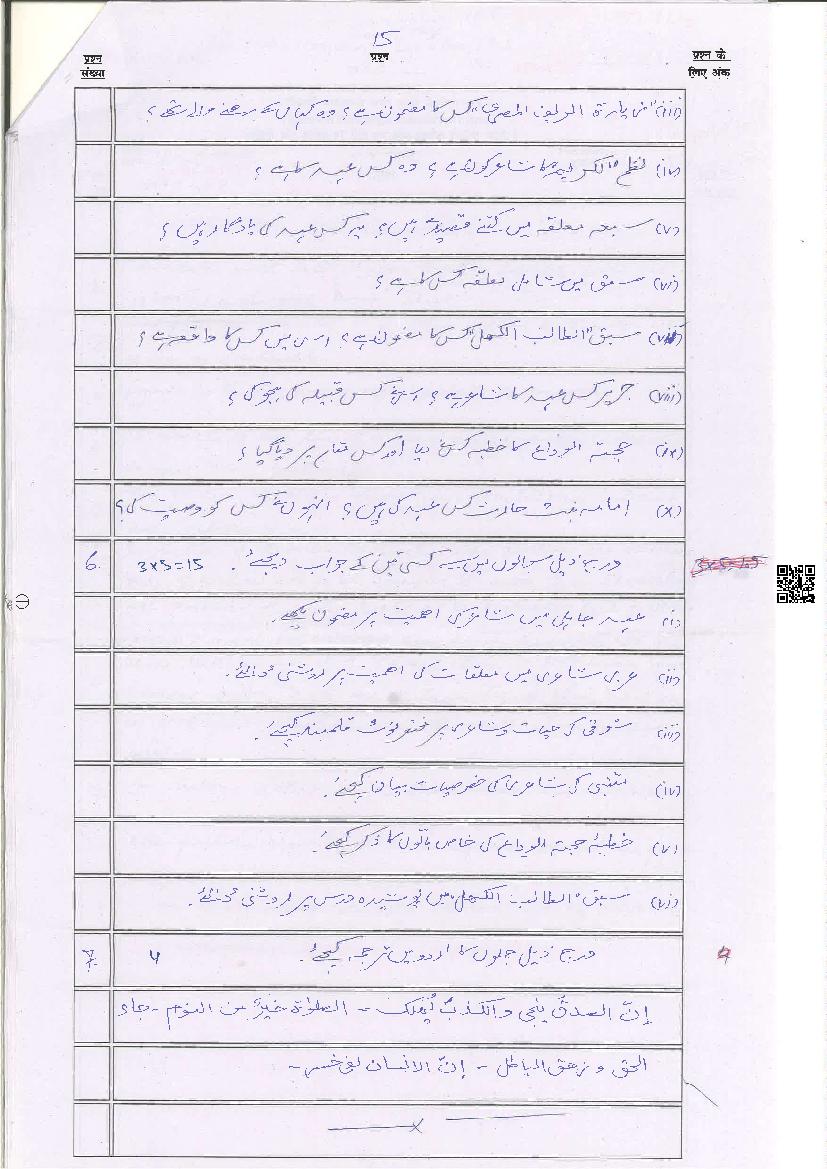 15
प्रश्न संख्या
प्रश्न
प्रश्न के लिए अंक
(iii) " زيارة الريف المصرى" کس کا مضمون ہے؟ وہ کہاں کے رہنے والے تھے؟
(iv) نظم " " کا شاعر کون ہے؟ وہ کس عہد کا ہے؟
(v) سبعہ معلقہ میں کتنے قصیدے ہیں؟ یہ کس عہد کی یادگار ہیں؟
(vi) سبق میں شامل معلقہ کس کا ہے؟
(vii) سبق "الطالب الكهل" کس کا مضمون ہے؟ اس میں کس کا واقعہ ہے؟
(viii) جریر کس عہد کا شاعر ہے؟ اس نے کس قبیلہ کی ہجو کی؟
(ix) حجتہ الوداع کا خطبہ کس نے دیا اور کس مقام پر دیا گیا؟
(x) امامہ بنت حارث کس عہد کی ہیں؟ انہوں نے کس کو وصیت کی؟
6. درج ذیل سوالوں میں سے کسی تین کے جواب دیجئے۔ 3x5=15 3x5=15
(i) عہد جاہلی میں شاعری اہمیت پر مضمون لکھئے۔
(ii) عربی شاعری میں معلقات کی اہمیت پر روشنی ڈالئے۔
(iii) شوقی کی حیات و شاعری پر مختصر نوٹ قلمبند کیجئے۔
(iv) متنبی کی شاعری کی خصوصیات بیان کیجئے۔
(v) خطبۂ حجتہ الوداع کی خاص باتوں کا ذکر کیجئے۔
(vi) سبق "الطالب الكهل" میں پوشیدہ درس پر روشنی ڈالئے۔
7. درج ذیل جملوں کا اردو میں ترجمہ کیجئے۔ 4
إنّ الصدق ينجي والكذب يُهلك - الصلوٰة خيرٌ من النوم - جاء
الحق و زهق الباطل - إنّ الانسان لفى خسر -
x